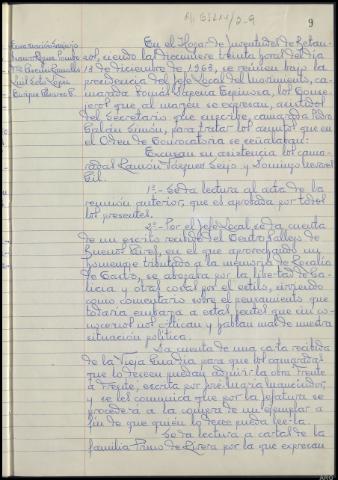 9
En el Hogar de Juventudes de Betan-
zos, siendo las diecinueve treinta horas del día
13 de diciembre de 1963, se reunen bajo la
presidencia del Jefe Local del Movimiento, ca-
marada Tomás García Espinosa, los Conse-
jeros que al margen se expresan, asistidos
del Secretario que suscribe, camarada Pedro
Galán Simón, para tratar los asuntos que en
el Orden de Convocatoria se señalaban:
Excusan su asistencia los cama-
radas Ramón Vázquez Seijo y Domingo
Gil.
1º.- Se da lectura al acta de la
reunión anterior, que es aprobada por todos
los presentes.
2º.- Por el Jefe Local se da cuenta
de un escrito recibido del Centro Gallego de
Buenos Aires, en el que aprovechando un
homenaje tributado a la memoria de Rosalía
de Castro, se abogaba por la libertad de Ga-
licia y otras cosas por el estilo, sirviendo
como comentario sobre el pensamiento que
todavía embarga a estas gentes que sin co-
nocernos nos critican y hablan mal de nuestra
situación política.
Da cuenta de una carta recibida
de la Vieja Guardia para que los camaradas
que lo deseen puedan adquirir la obra Frente
a Frente, escrita por José María Mancisidor,
y se les comunica que por la Jefatura se
procederá a la compra de un ejemplar a
fin de que quién lo desee pueda leerla.
Se da lectura a cartas de la
familia Primo de Rivera por la que expresan